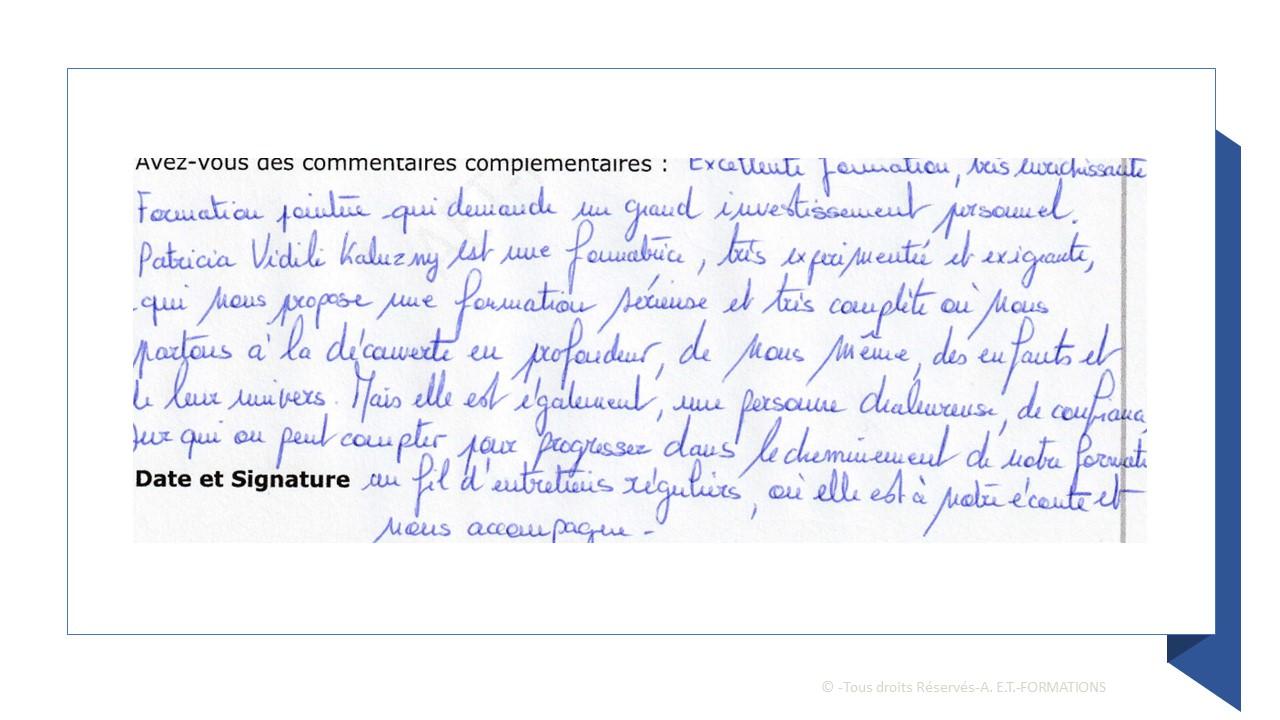 Avez-vous des commentaires complémentaires : Excellente formation, très enrichissante
Formation pointue qui demande un grand investissement personnel.
Patricia Vidili Kaluzny est une formatrice, très expérimentée et exigeante,
qui nous propose une formation sérieuse et très complète où nous
partons à la découverte en profondeur, de nous même, des enfants et
de leur univers. Mais elle est également, une personne chaleureuse, de confiance,
sur qui on peut compter pour progresser dans le cheminement de notre formati
Date et Signature au fil d'entretiens réguliers, où elle est à notre écoute et
nous accompagne -
© -Tous droits Réservés-A. E.T.-FORMATIONS